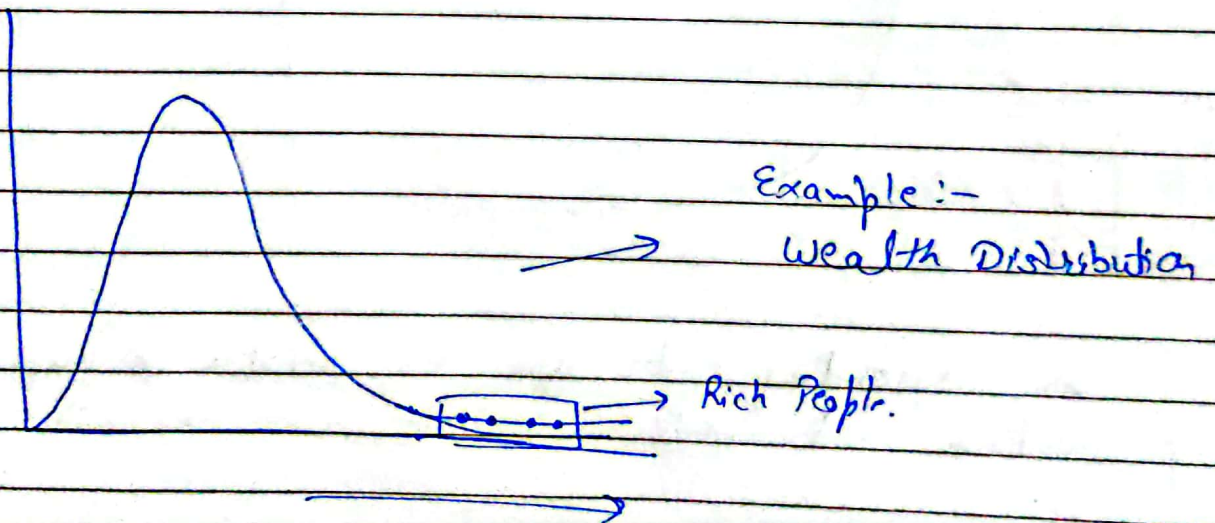 Example :-
Wealth Distribution
Rich People.